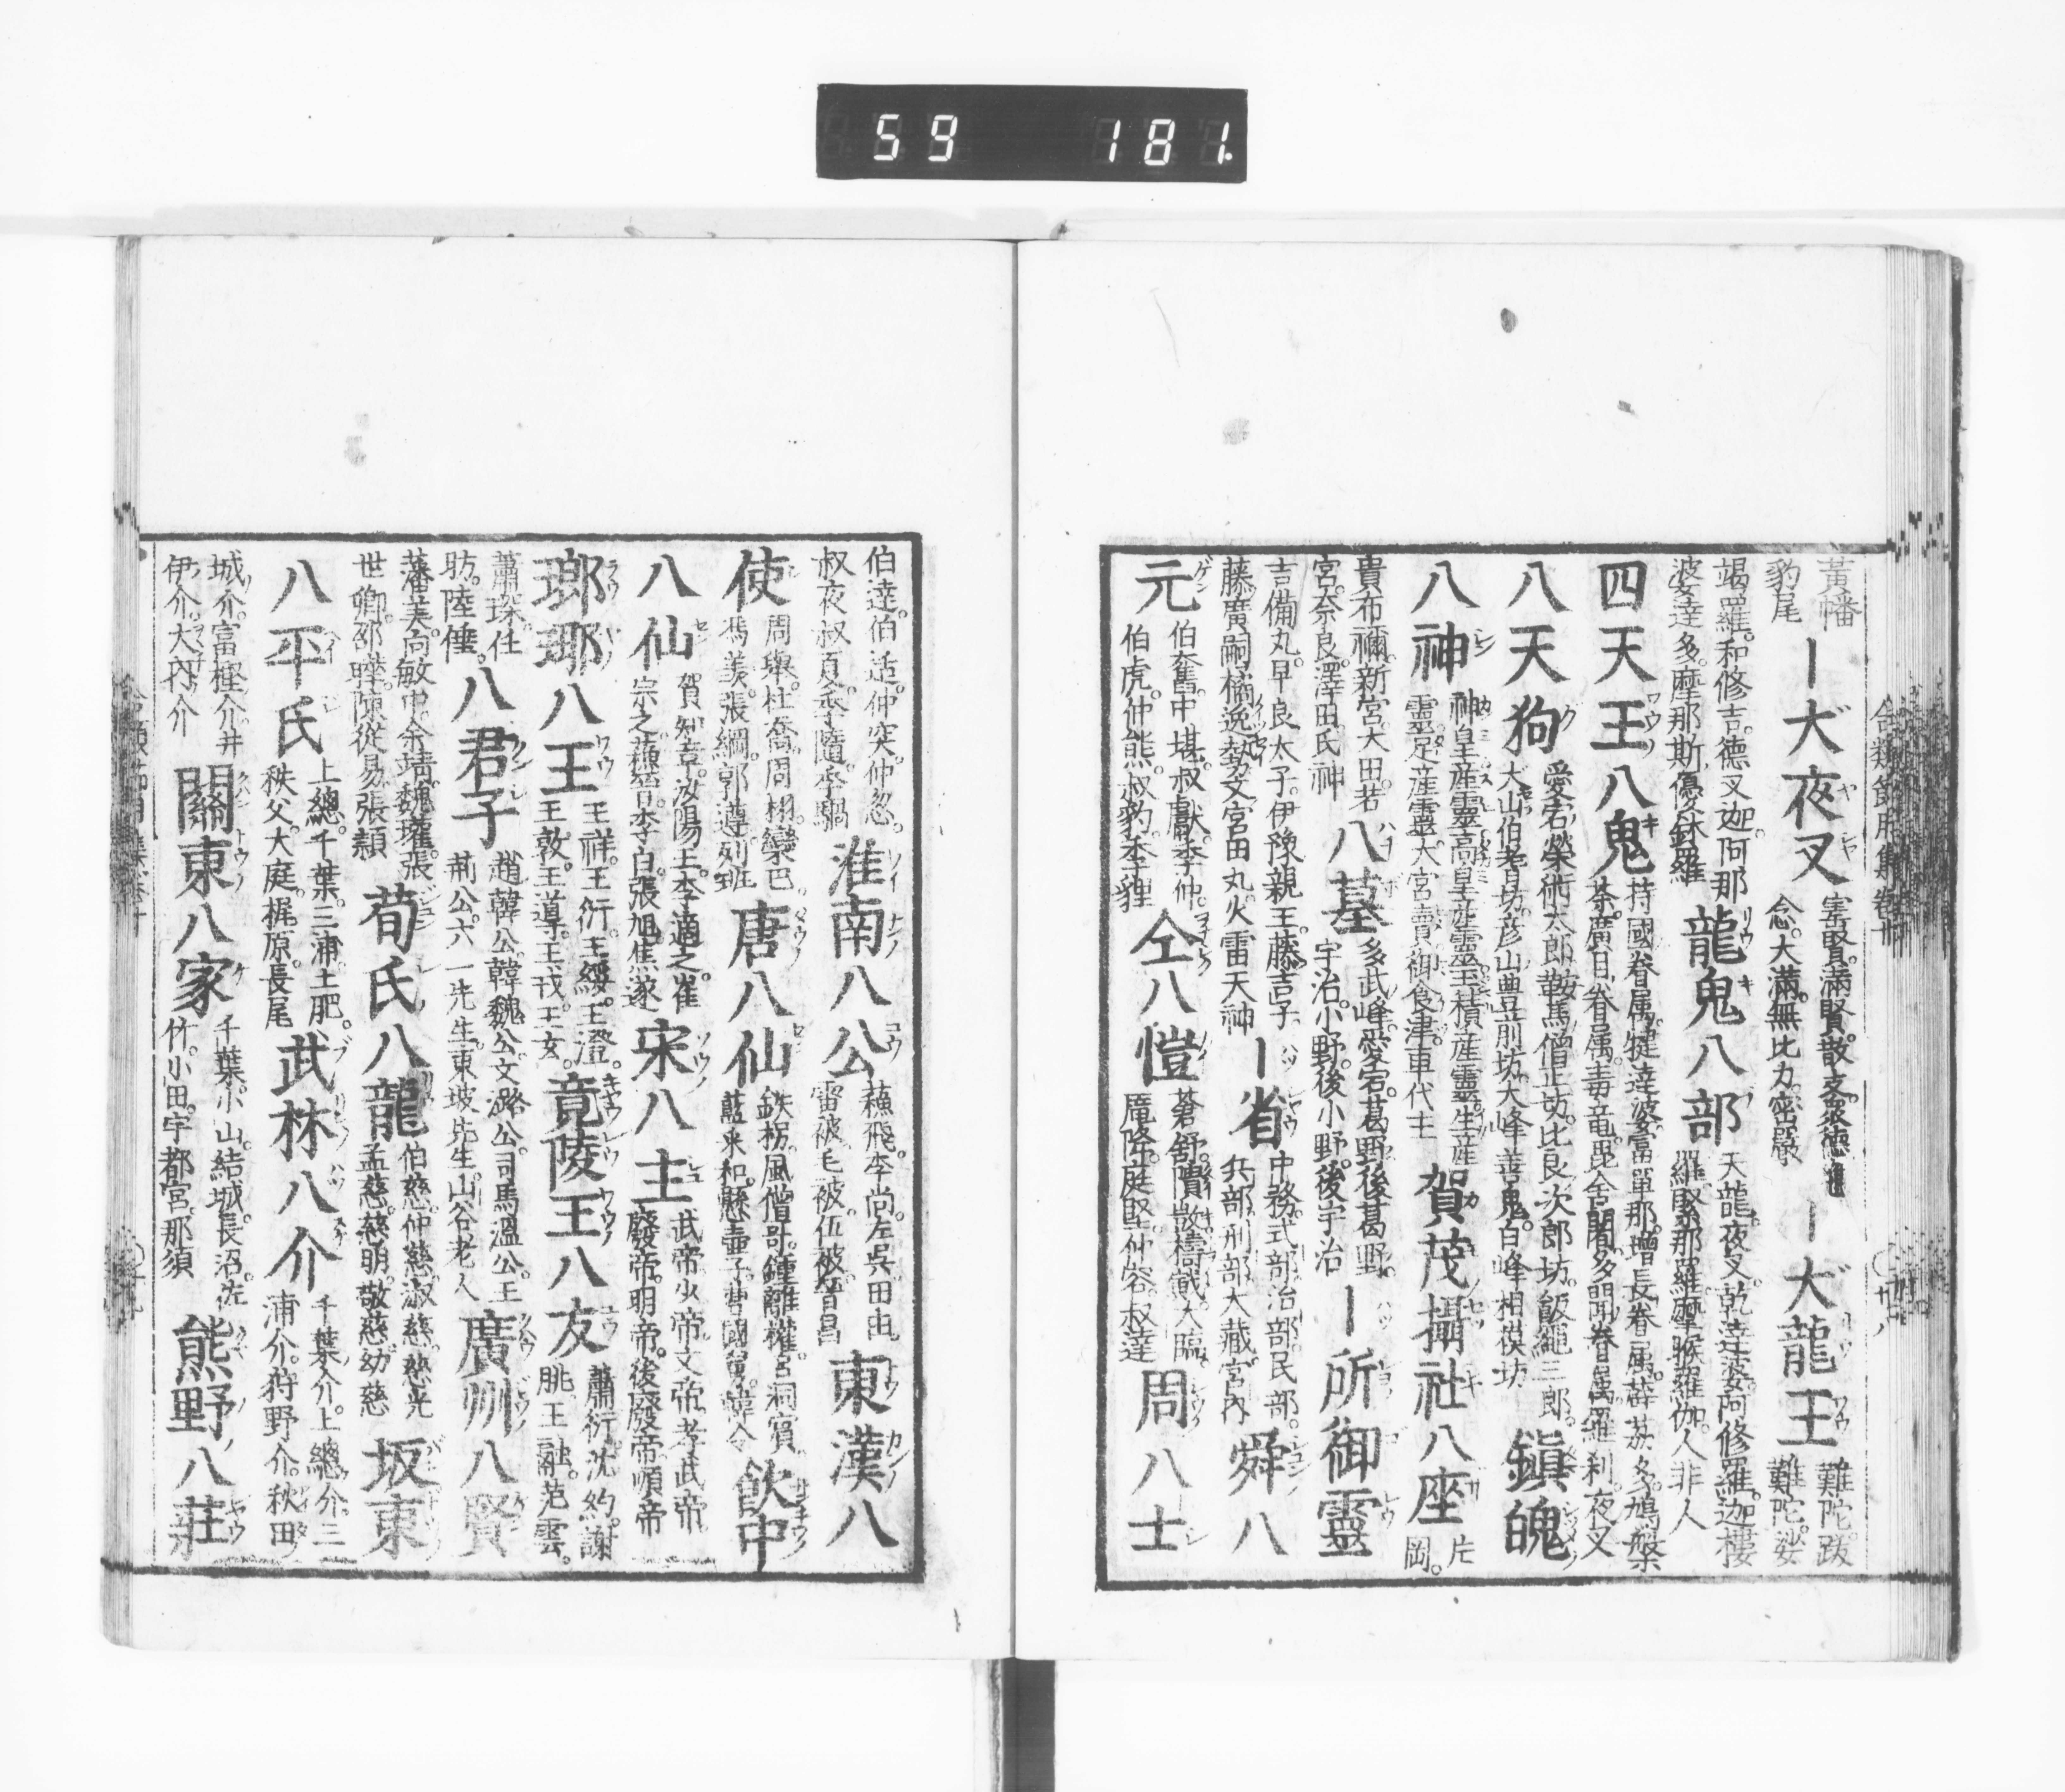 59 181
黄幡
豹尾
｜大夜叉
密賢。滿賢。散支。衆德
念。大滿。無比力。密嚴
｜大龍王
難陀。跋
難陀。娑
竭羅。和修吉。德叉迦。阿那
婆達多。摩那斯。優鉢羅
龍鬼八部
天龍。夜叉。乾達婆。阿修羅。迦樓
羅。緊那羅。摩睺羅伽。人非人
四天王八鬼
持國眷属。犍達婆。富單那。增長眷属。薜茘多。鳩槃
茶。廣目眷属。毒竜。毘舍闍。多聞眷属。羅刹。夜叉
八天狗
愛宕榮術太郎。鞍馬僧正坊。比良次郎坊。飯縄三郎。
大山伯耆坊。彦山豊前坊。大峰善鬼。白峰相模坊
鎮魄
八神
神皇産霊。高皇産霊。玉積産霊。生産
靈。足産靈。大宮賣。御食津。事代主
賀茂攝社八座
片
岡。
貴布禰。新宮。大田。若
宮。奈良。澤田。氏神
八墓
多武峰。愛宕。葛野。後葛野。
宇治。小野。後小野。後宇治
｜所御靈
吉備丸。早良太子。伊豫親王。藤吉子。
藤廣嗣。橘逸勢。文宮田丸。火雷天神
｜省
中務。式部。治部。民部。
兵部。刑部。大藏。宮内
舜八
元
伯奮。中堪。叔獻。季仲。
伯虎。仲熊。叔豹。季貍
仝八愷
蒼舒。隤敱。檮戭。大臨。
尨降。庭堅。仲容。叔達
周八士
伯達。伯适。仲突。仲忽。
叔夜。叔夏。季隨。季騧
淮南八公
蘇飛。李尚。左呉。田由
雷被。毛被。伍被。晋昌
東漢八
使
周舉。杜喬。周栩。欒巴。
馮羨。張綱。郭遵。列班
唐八仙
鉄枴。風僧哥。鍾離權。呂洞賓。
藍采和。懸壷子。曹國舅。韓令
飲中
八仙
賀知章。汝陽王。李適之。崔
宗之。蘇晋。李白。張旭。焦遂
宋八主
武帝。少帝。文帝。考武帝。
廢帝。明帝。後廢帝。順帝
瑯琊八王
王祥。王衍。王綏。王澄。
王敦。王導。王戎。王玄。
竟陵王八友
蕭衍。沈約。謝
朓。王融。范雲。
蕭琛。任
昉。陸倕。
八君子
趙韓公。韓魏公。文潞公。司馬温公。王
荊公。六一先生。東坡先生。山谷老人
廣州八賢
藩美。向敏中。余靖。魏瓘。張
世卿。邵曄。陳從易。張頴
荀氏八龍
伯慈。仲慈。淑慈。慈光
孟慈。慈明。敬慈。幼慈
坂東
八平氏
上總。千葉。三浦。土肥。
秩父。大庭。梶原。長尾
武林八介
千葉介。上總介。三
浦介。狩野介。秋田
城介。富樫介。井
伊介。大内介
關東八家
千葉。小山。結城。長沼。佐
竹。小田。宇都宮。那須
熊野八莊